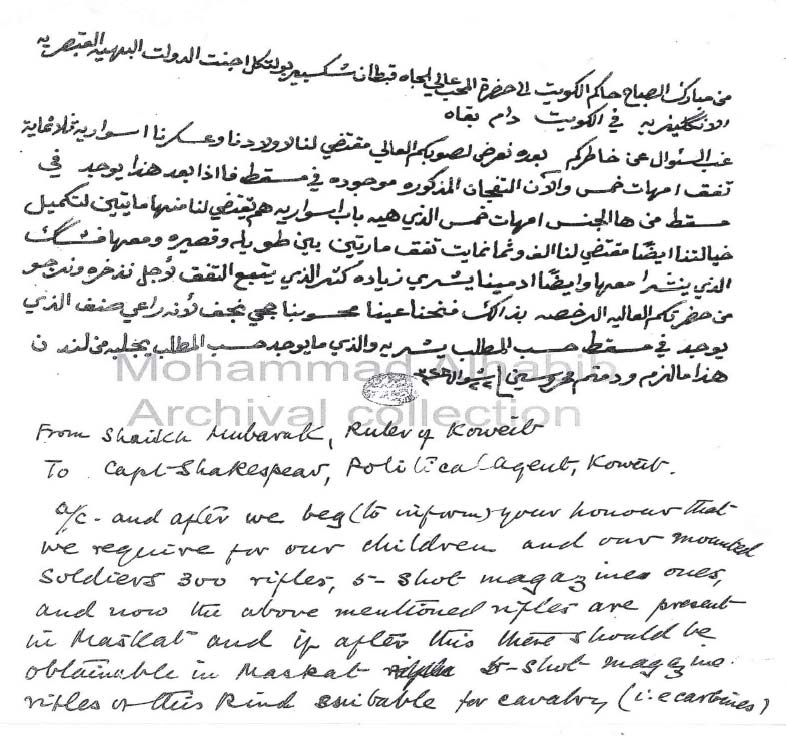 من مبارك الصباح حاكم الكويت الى حضرة المحب عالي الجاه قبطان شكسبير بولتكل اجنت الدولت البهيه القيصريه
الانكليزيه في الكويت دام بقاه
غب السئوال عن خاطركم بعده نعرض لصوبكم العالي مقتضي لنا لاولادنا وعسكرنا اسواريه ثلاثماية
تفق امهات خمس والآن التفجان المذكوره موجوده في مسقط فاذا بعد هذا يوجد في
مسقط من هالجنس امهات خمس الذي هيه باب اسواريه هم يقتضي لنا منها مايتين لتكميل
خيالتنا ايضًا مقتضي لنا الف وثمانمايت تفق مارتين بين طويله وقصيره ومعها فشك
الذي ينشرا معها وايضًا ادمينا يشري زياده كثر الذي يتبع التفق لأجل نذخره ونرجو
من حضرتكم العاليه الرخصه بذالك فنحنا عينا محسوبنا نجف لأنه راعي صنف الذي
يوجد في مسقط حسب المطلب يشريه والذي ما يوجد حسب المطلب يجلبه من لندن
هذا مالزم ودمتم محروسين ٢٢ شوال ١٣٢٧
Mohammad Alhabib
Archival collection
From Shaikh Mubarak, Ruler of Koweit
To Capt-Shakespear, Political Agent, Koweit.
a/c. and after we beg (to inform) your honour that
we require for our children and our mounted
Soldiers 300 rifles, 5-shot magazines ones,
and now the above mentioned rifles are present
in Maskat and if after this there should be
obtainable in Maskat 5-shot magazine
rifles of this kind suitable for cavalry (i.e carbines)